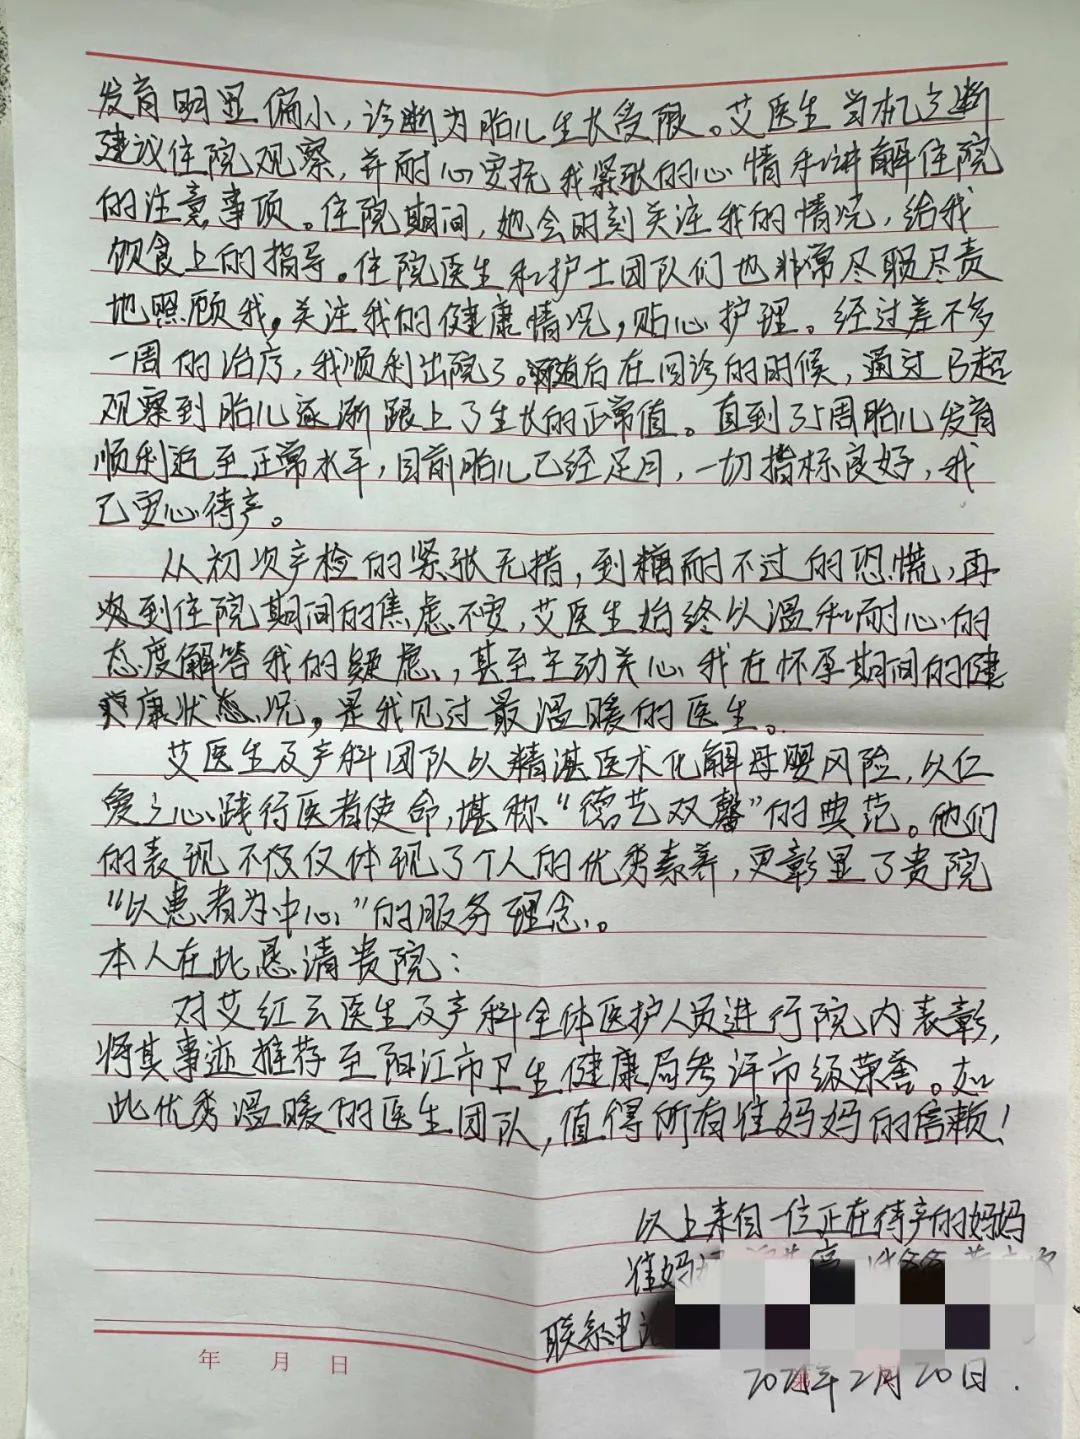 发育明显偏小，诊断为胎儿生长受限。艾医生当机立断
建议住院观察，并耐心安抚我紧张的心情和讲解住院
的注意事项。住院期间，她会时刻关注我的情况，给我
饮食上的指导。住院医生和护士团队们也非常尽职尽责
地照顾我，关注我的健康情况，贴心护理。经过差不多
一周的治疗，我顺利出院了。随后在回诊的时候，通过B超
观察到胎儿逐渐跟上了生长的正常值。直到35周胎儿发育
顺利近至正常水平，目前胎儿已经足月，一切指标良好，我
已安心待产。
从初次产检的紧张无措，到糖耐不过的恐慌，再
到住院期间的焦虑不安，艾医生始终以温和耐心的
态度解答我的疑虑，甚至主动关心我在怀孕期间的健
康状态况。是我见过最温暖的医生。
艾医生及产科团队以精湛医术化解母婴风险，以仁
爱之心践行医者使命，堪称“德艺双馨”的典范。他们
的表现不仅仅体现了个人的优秀素养，更彰显了贵院
“以患者为中心”的服务理念。
本人在此恳请贵院：
对艾红云医生及产科全体医护人员进行院内表彰，
将其事迹推荐至阳江市卫生健康局参评市级荣誉。如
此优秀温暖的医生团队，值得所有准妈妈的信赖！
以上来自一位正在待产的妈妈
准妈妈
联系电话
年 月 日
年2月20日.